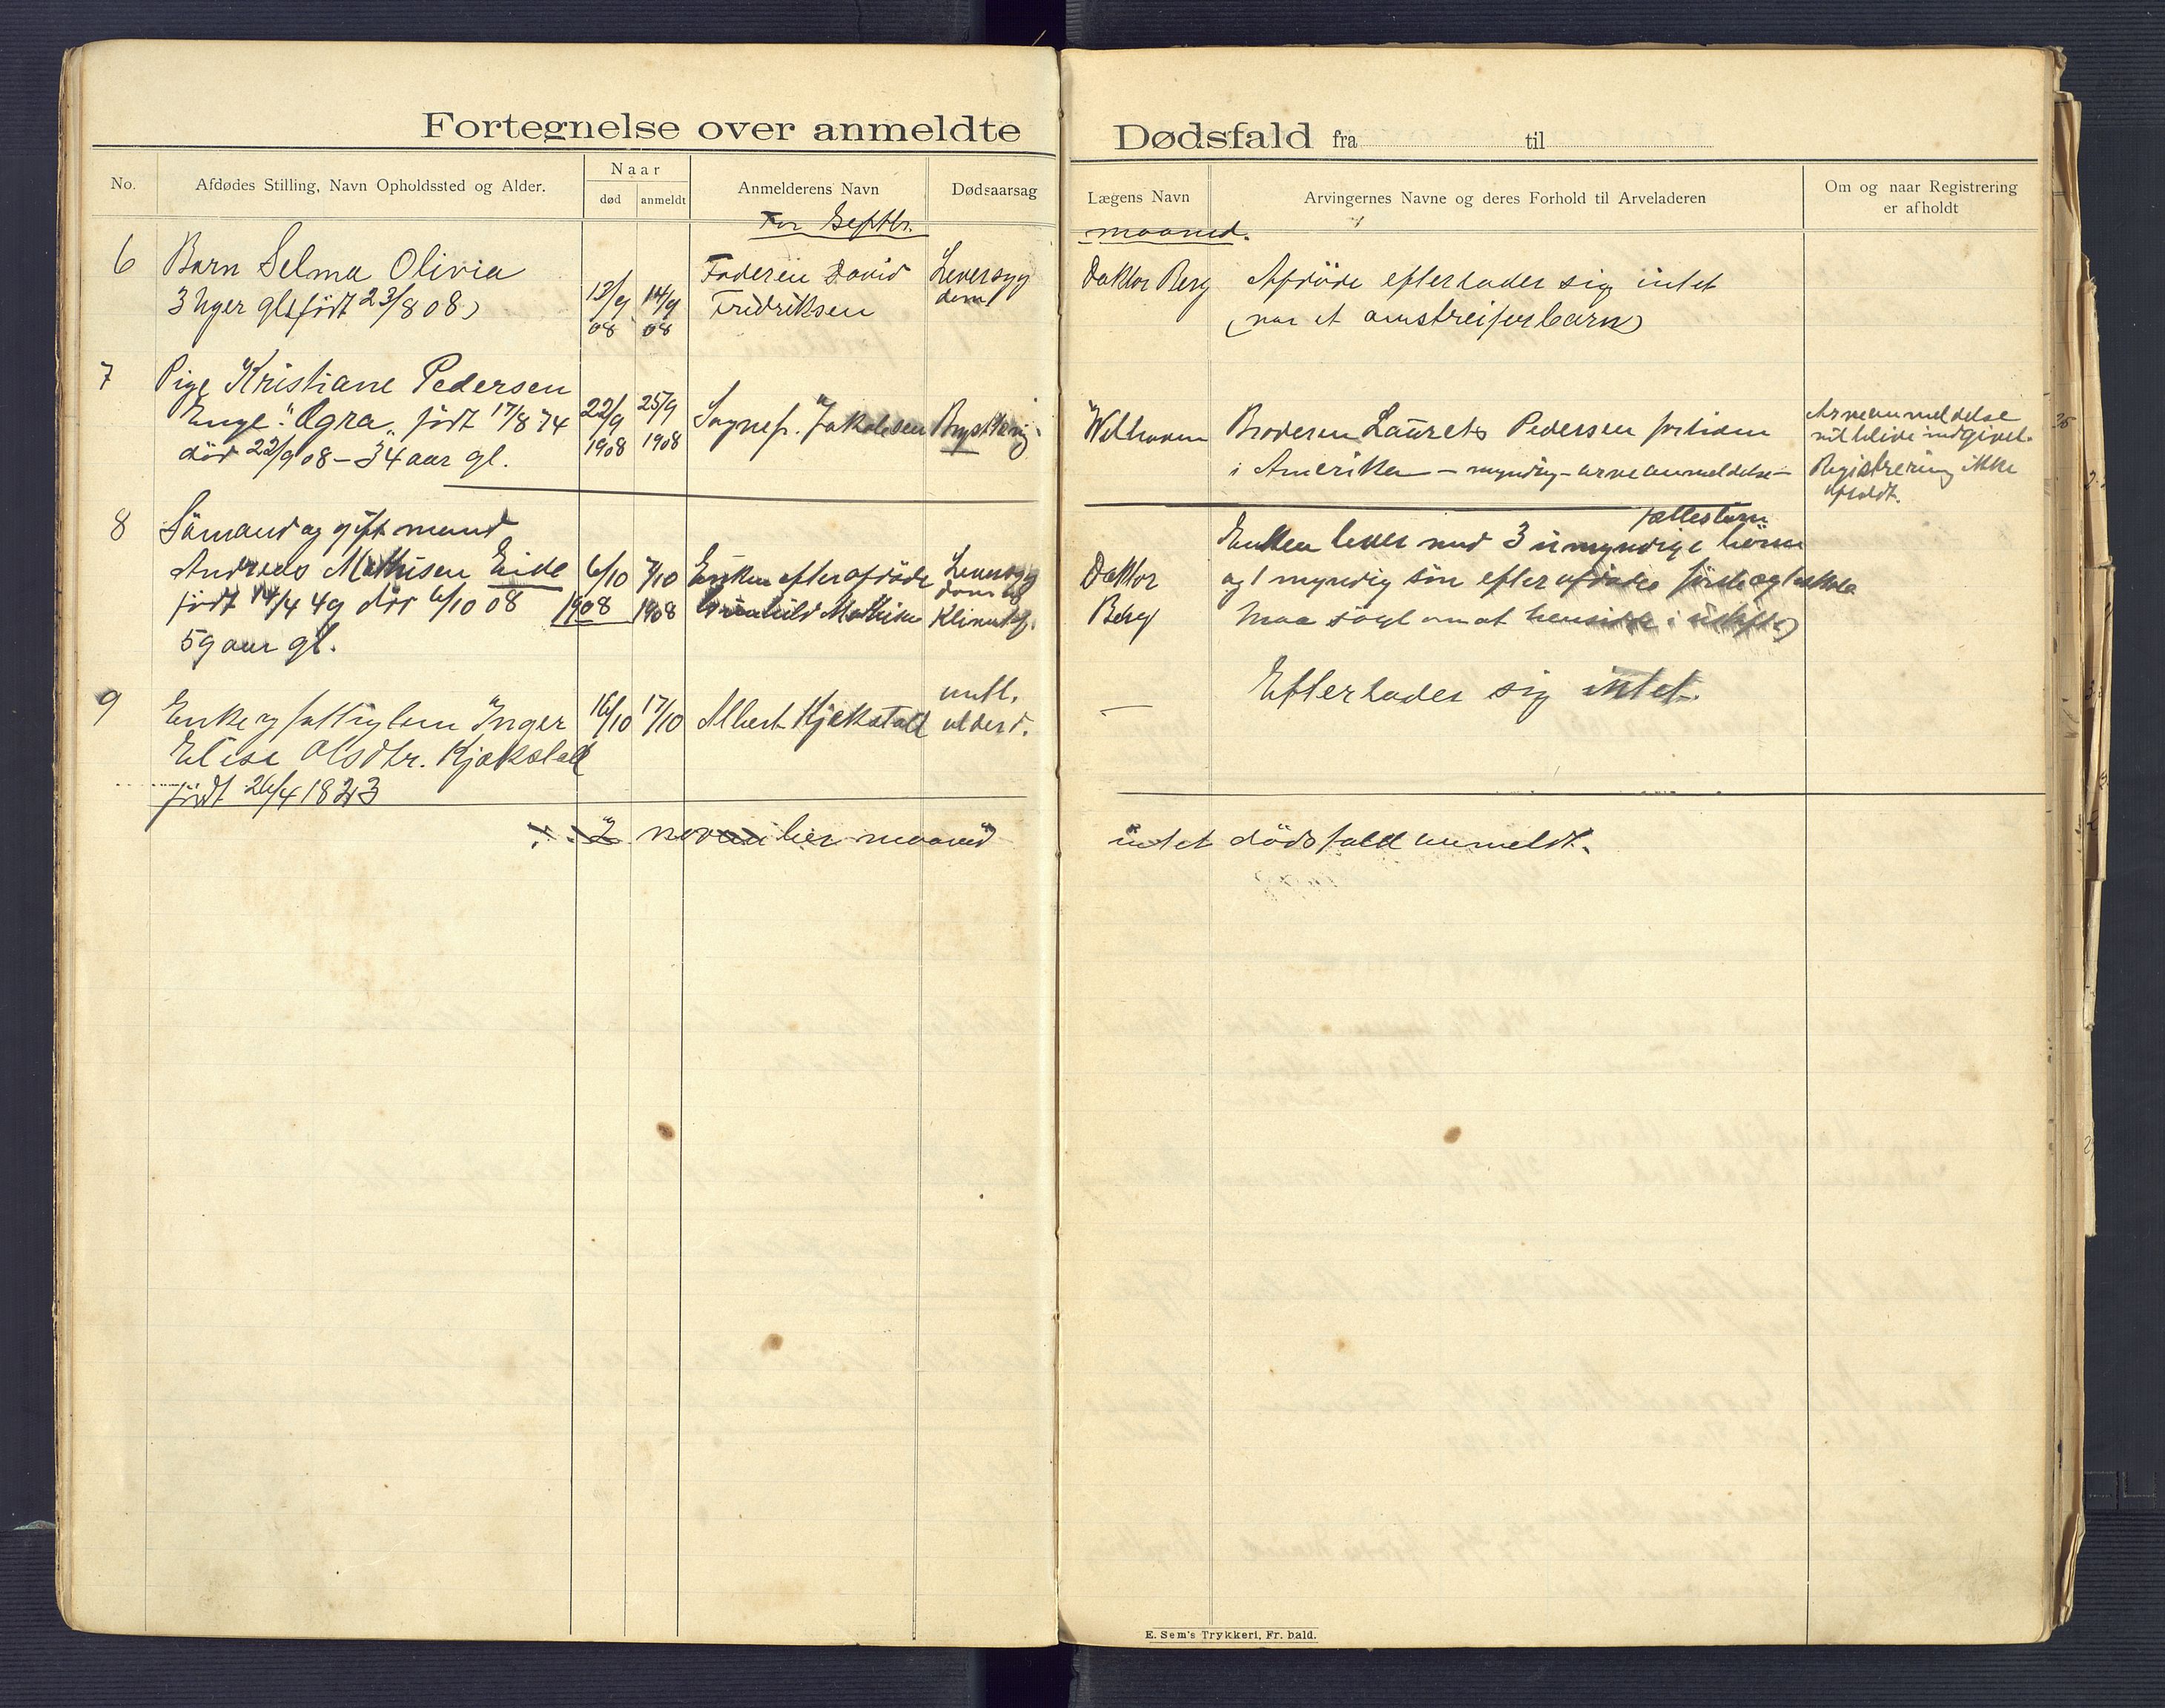 Fortegnelse over anmeldte Dødsfald fra til
No. Afdødes Stilling, Navn Opholdssted og Alder. Naar død anmeldt Anmelderens Navn Dødsaarsag Lægens Navn Arvingernes Navne og deres Forhold til Arveladeren Om og naar Registrering er afholdt
For Septbr. maaned.
6 Barn Selma Olivia
3 Uger gl. (født 23/8 08)
13/9 08 14/9 08
Faderen David
Fridriksen
Leversyg
dom
Doktor Berg
Afdöde efterlader sig intet
(var et omstreiferbarn)
7 Pige Kristiane Pedersen
Enge. Ogra. født 17/8 74
död 22/9 08 – 34 aar gl.
22/9 1908 25/9 1908
Sognepr. Jakobsen
Brysttæring
Broderen Laurets Pedersen fortiden
i Amerika – myndig – arveanmeldelse –
Arveanmeldelse
vil blive indgivet.
Registrering ikke
afholdt.
8 Sömand og gift mand
Andreas Mathisen Eide
født 14/4 49 död 6/10 08
59 aar gl.
6/10 1908 7/10 1908
Enken efter afdöde
Mathisen
Leversyg
dom
Doktor
Berg
fællesbørn
Enken lever med 3 umyndige börn
og 1 myndig sön efter afdödes förste ægteskab
maa sögt om at hensidde i uskifte)
9 Enke og fattiglem Inger
Elise Olsdtr. Kjækstad
født 26/4 1823
16/10 17/10
Albert Kjekstad
alderd.
—
Efterlader sig intet.
november maaned intet dödsfald anmeldt.
E. Sem's Trykkeri, Fr. hald.